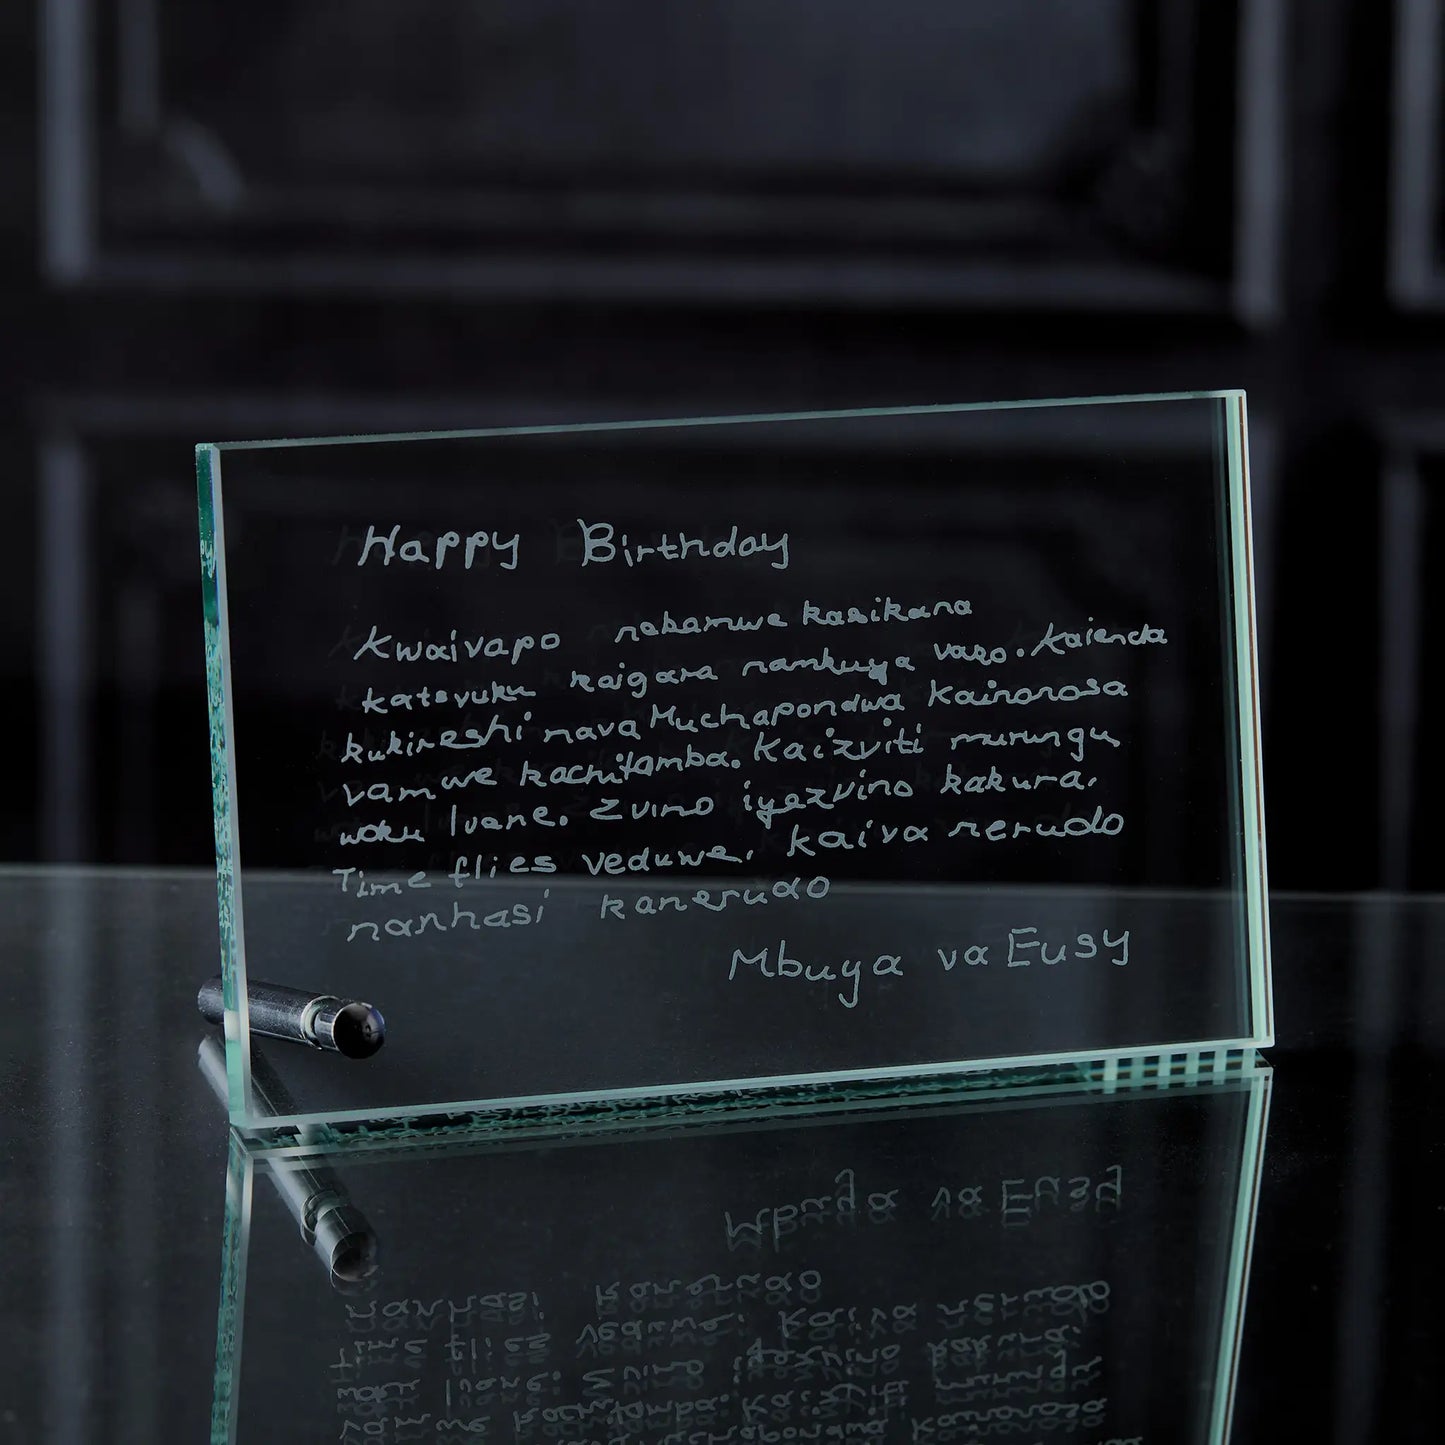 Happy Birthday
Kwaivapo nebamwe kasikana
katsvuku kaigara namkuya vavo. Kaienda
kukireshi nava Muchapondwa kainonosa
vamwe kachitamba. Kaizviti murungu
woku Ivene. Zvino iyezvino kakura.
Time flies veduwe, kaiva nerudo
nanhasi kanerudo
Mbuya va Eusy